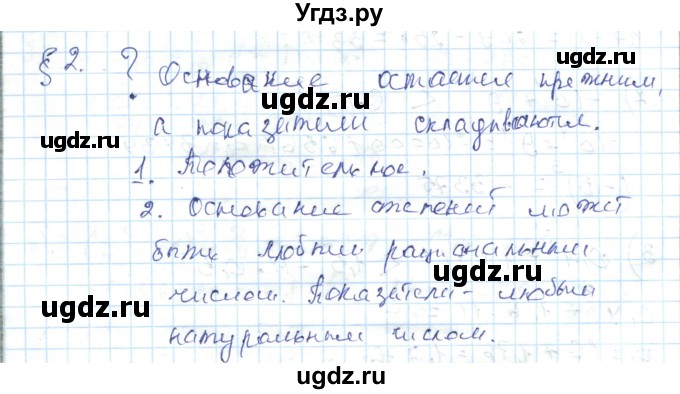 Угдз.ру
§ 2. ? Основание остаётся прежним,
ugdz.ru ugdz.ru
а показатели складываются.
ugdz.ru
1. Положительное.
2. Основание степеней может
быть любым рациональным
ugdz.ru ugdz.ru
числом. Показатели - любым
натуральным числом.
ugdz.ru